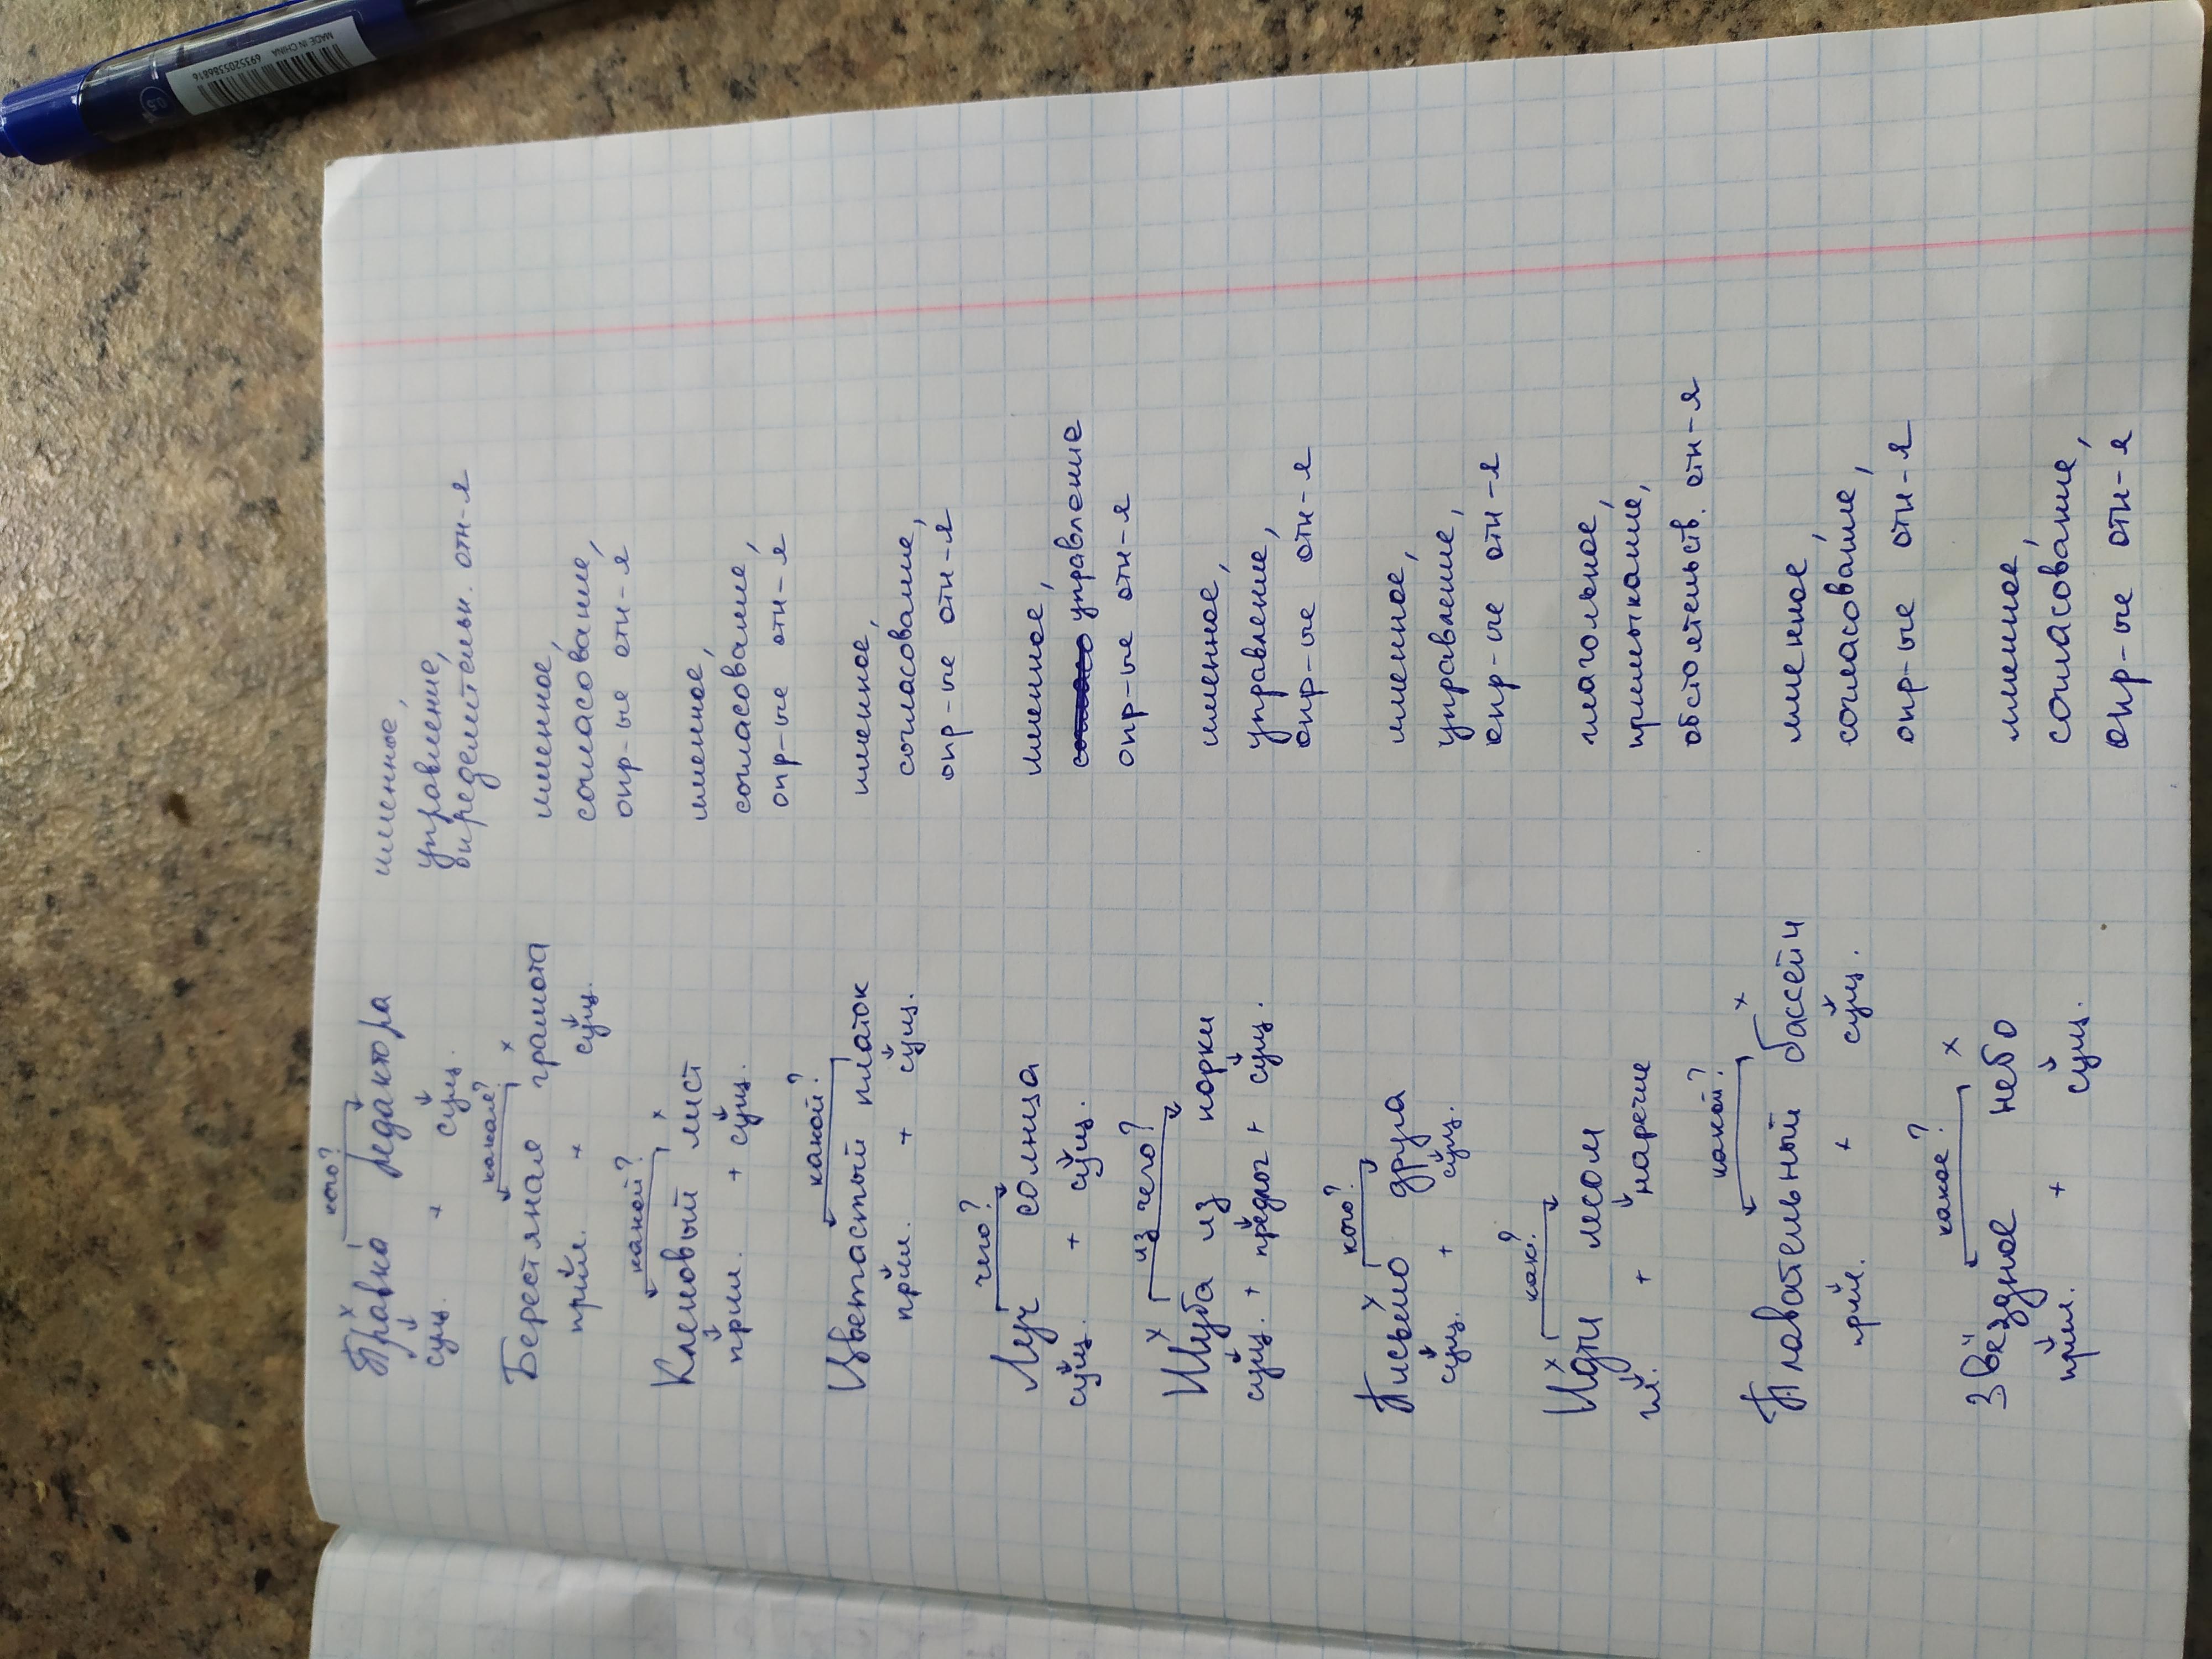 MADE IN CHINA
6935205386816
0.5
кого?
Правка редактора
сущ. + сущ.
именное,
управление,
определительн. отн-я
какая?
Берестяная грамота
прил. + сущ.
именное,
согласование,
опр-ые отн-я
какой?
Кленовый лист
прил. + сущ.
именное,
согласование,
опр-ые отн-я
какой?
Цветастый платок
прил. + сущ.
именное,
согласование,
опр-ые отн-я
чего?
Луч солнца
сущ. + сущ.
именное,
управление
опр-ые отн-я
из чего?
Шуба из норки
сущ. + предлог + сущ.
именное,
управление,
опр-ые отн-я
кого?
Письмо друга
сущ. + сущ.
именное,
управление,
опр-ые отн-я
как?
Идти лесом
гл. + наречие
глагольное,
примыкание,
обстоятельств. отн-я
какой?
Плавательный бассейн
прил. + сущ.
именное,
согласование,
опр-ые отн-я
какое?
Звёздное небо
прил. + сущ.
именное,
согласование,
опр-ые отн-я